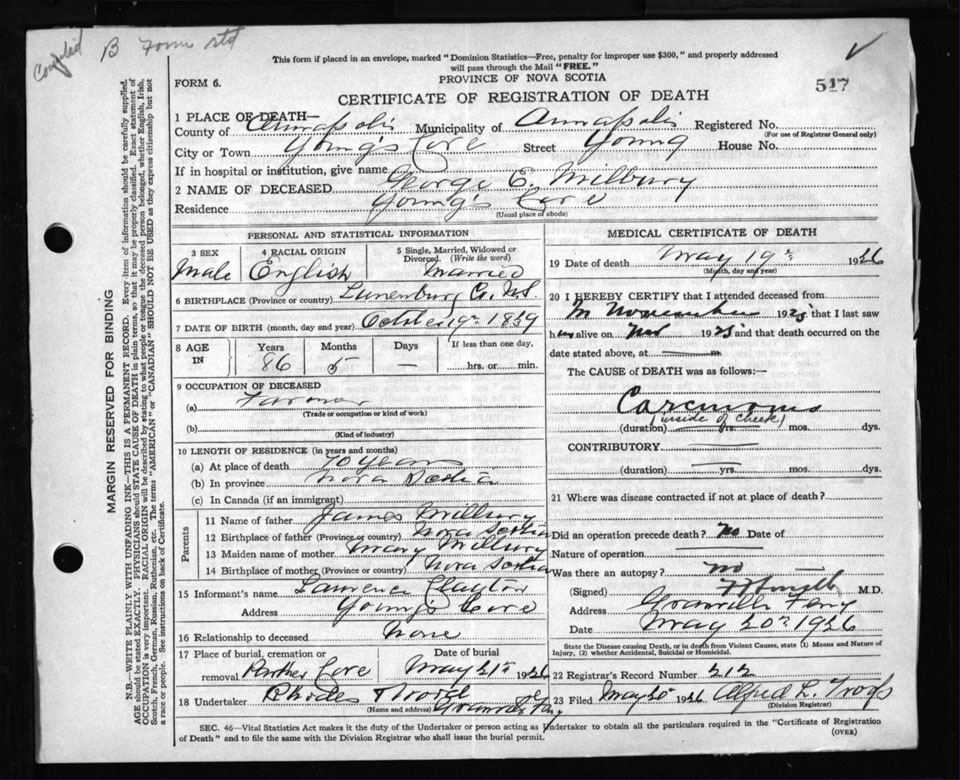 B Form std
This form if placed in an envelope, marked "Dominion Statistics—Free, penalty for improper use $300," and properly addressed
will pass through the Mail "FREE."
FORM 6.
PROVINCE OF NOVA SCOTIA
517
CERTIFICATE OF REGISTRATION OF DEATH
1 PLACE OF DEATH—
County of Annapolis Municipality of Annapolis Registered No.
(For use of Registrar General only)
City or Town Young's Cove Street Young House No.
If in hospital or institution, give name
2 NAME OF DECEASED George E. Milbury
Residence Young's Cove
(Usual place of abode)
PERSONAL AND STATISTICAL INFORMATION
3 SEX Male
4 RACIAL ORIGIN English
5 Single, Married, Widowed or Divorced. (Write the word) Married
6 BIRTHPLACE (Province or country) Lunenburg Co. N.S.
7 DATE OF BIRTH (month, day and year) October 19th 1839
8 AGE IN Years 86 Months 5 Days —
If less than one day,
hrs. or min.
9 OCCUPATION OF DECEASED
(a) Farmer
(Trade or occupation or kind of work)
(b)
(Kind of industry)
10 LENGTH OF RESIDENCE (in years and months)
(a) At place of death 70 Years
(b) In province Nova Scotia
(c) In Canada (if an immigrant)
Parents
11 Name of father James Milbury
12 Birthplace of father (Province or country) Nova Scotia
13 Maiden name of mother Mary Milbury
14 Birthplace of mother (Province or country) Nova Scotia
15 Informant's name Clayton
Address Young's Cove
16 Relationship to deceased None
17 Place of burial, cremation or removal Parkers Cove
Date of burial May 21st 1926
18 Undertaker Rhodes
(Name and address) Granville Ferry
MEDICAL CERTIFICATE OF DEATH
19 Date of death May 19th 1926
(Month, day and year)
20 I HEREBY CERTIFY that I attended deceased from
In November 1925 that I last saw
him alive on Nov 1925 and that death occurred on
date stated above, at m
The CAUSE of DEATH was as follows:—
Carcinoma
(inside of cheek)
(duration) yrs. mos. dys.
CONTRIBUTORY
(duration) yrs. mos. dys.
21 Where was disease contracted if not at place of death?
Did an operation precede death? No Date of
Nature of operation
Was there an autopsy? No
(Signed) M.D.
Address Granville Ferry
Date May 20th 1926
State the Disease causing Death, or in death from Violent Causes, state (1) Means and Nature of
Injury, (2) whether Accidental, Suicidal or Homicidal.
22 Registrar's Record Number 212
23 Filed May 20 1926 Alfred L. Troop
(Division Registrar)
SEC. 46—Vital Statistics Act makes it the duty of the Undertaker or person acting as Undertaker to obtain all the particulars required in the "Certificate of Registration
of Death" and to file the same with the Division Registrar who shall issue the burial permit.
(OVER)
MARGIN RESERVED FOR BINDING
N.B.—WRITE PLAINLY WITH UNFADING INK—THIS IS A PERMANENT RECORD. Every item of information should be carefully supplied.
AGE should be stated EXACTLY. PHYSICIANS should STATE CAUSE OF DEATH in plain terms, so that it may be properly classified. Exact statement of
OCCUPATION is very important. RACIAL ORIGIN will be described by stating to what people or tongue the deceased person belonged, whether English, Irish,
Scotch, French, German, Russian, Ruthenian, etc. The terms "AMERICAN" or "CANADIAN" SHOULD NOT BE USED as they express citizenship but not
a race or people. See instructions on back of Certificate.